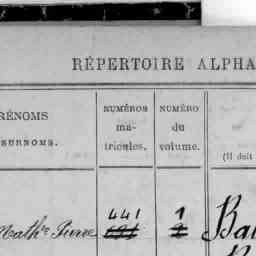 RÉPERTOIRE ALPHA
RÉNOMS
SURNOMS.
NUMÉROS
ma-
tricules.
NUMÉRO
du
volume.
(Il doit
441 1
Pierre 2 Ba